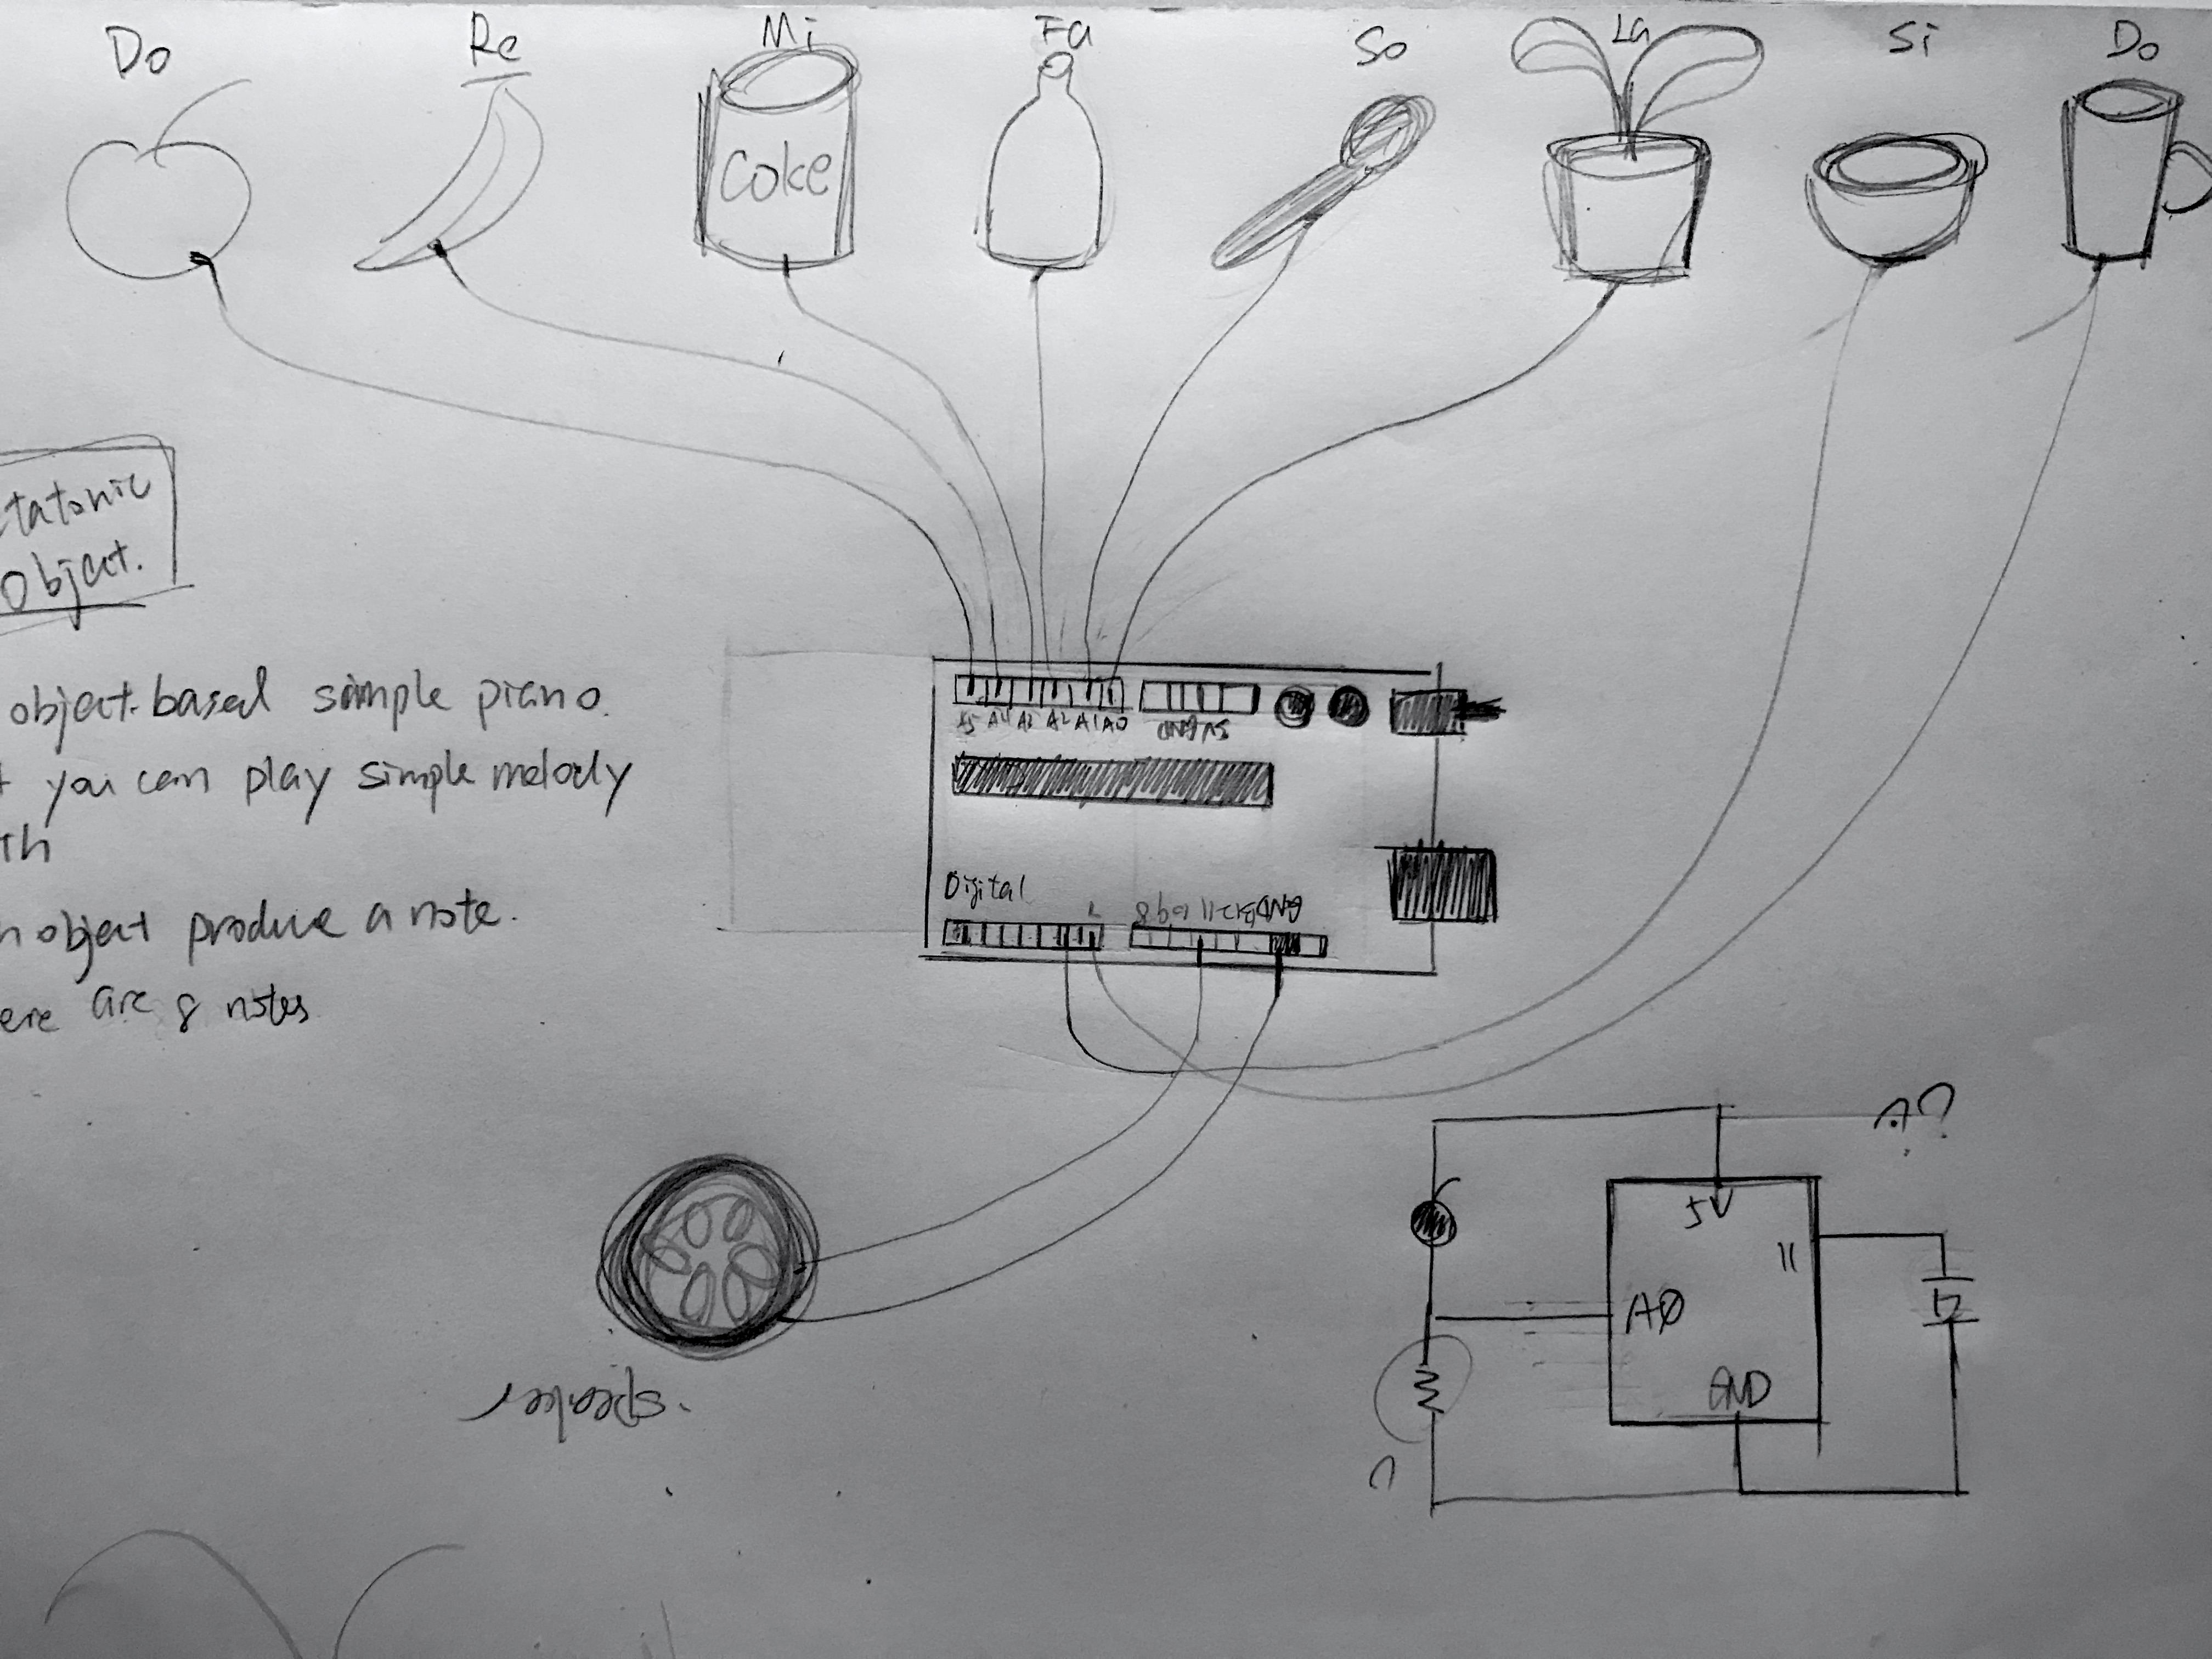 Do Re Mi Fa So La Si Do
Coke
tatonic
Object.
object-based simple piano.
you can play simple melody
th
n object produce a note.
ere are 8 notes
A5 A4 A3 A2 A1 A0 GND 5V
Digital
7 8 9 10 11 12 13 GND
speaker.
5V
11
A0
GND
?